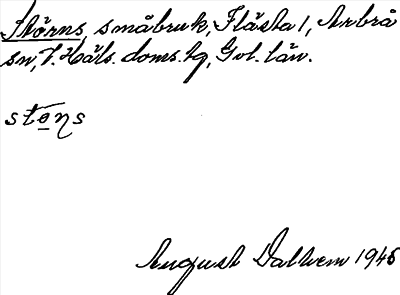 Störns, småbruk, Flästa 1, Arbrå
sn, V. Häls. doms. tg, Gvl. län.
stɵ̱ɳs
August Dalhem 1946